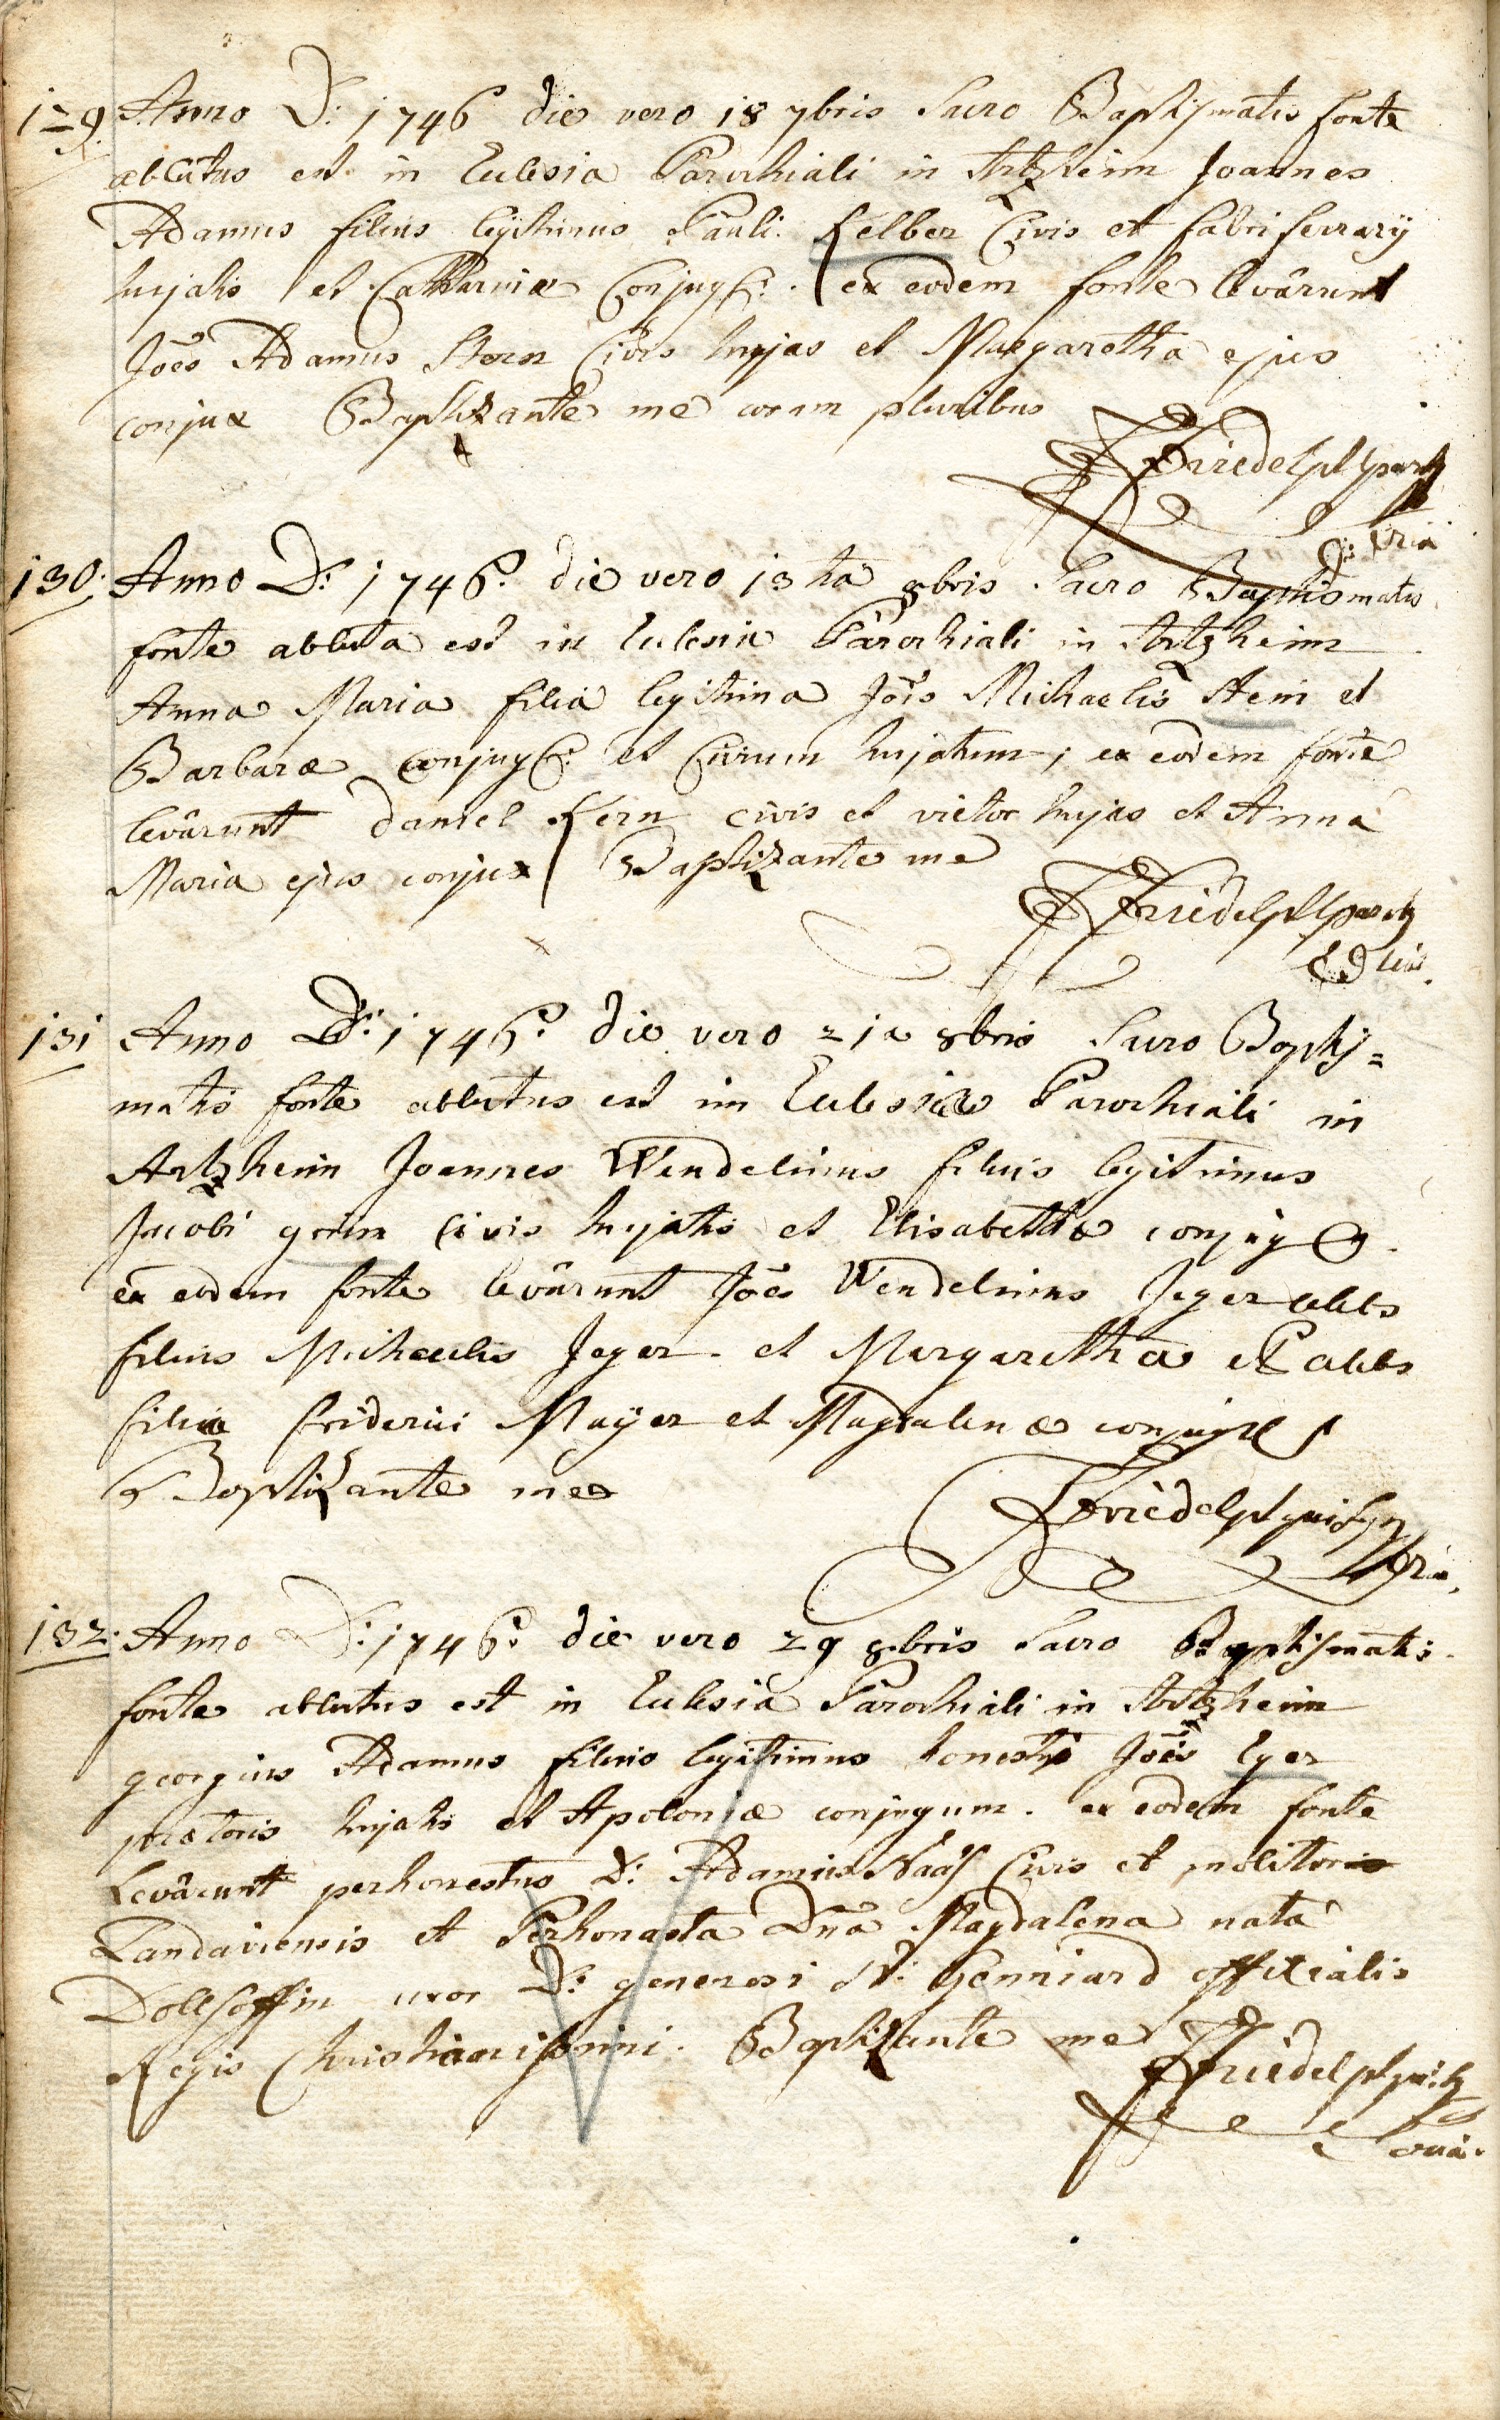 129. Anno D: 1746 die vero 18 7bris Sacro Baptismatis fonte
ablutus est in Ecclesia Parochiali in Artzheim Joannes
Adamus filius legitimus Pauli Kelber Civis et fabri ferrarij
hujatis et Catharinæ Conjug: ex eodem fonte levârunt
Jöes Adamus Stern Civis hujas et Margaretha ejus
conjux Baptizante me coram pluribus
130. Anno D: 1746. die vero 13tia 8bris Sacro Baptismatis
fonte abluta est in Ecclesia Parochiali in Artzheim
Anna Maria filia legitima Jöis Michaelis Stein et
Barbaræ conjug: et Civium hujatum; ex eodem fonte
levârunt Daniel Kern civis et vietor hujas et Anna
Maria ejus conjux Baptizante me
131 Anno D: 1746. die vero 21a 8bris Sacro Baptis=
matis fonte ablutus est in Ecclesia Parochiali in
Artzheim Joannes Wendelinus filius legitimus
Jacobi grim Civis hujatis et Elisabethæ conjug
ex eodem fonte levârunt Jöes Wendelinus Jeger
filius Michaelis Jeger et Margaretha
filia friderici Mayer et Magdalenæ
Baptizante me
132. Anno D: 1746. die vero 29 8bris Sacro Baptismatis
fonte ablutus est in Ecclesia Parochiali in Artzheim
georgius Adamus filius legitimus honesti Jöis Eger
prætoris hujatis et Apoloniæ conjugum. ex eodem fonte
Levârunt perhonestus D: Adamus Naas Civis et molitor
Landaviensis et Perhonesta Dna Magdalena nata
uxor D: generosi officialis
Regis Christianissimi. Baptizante me